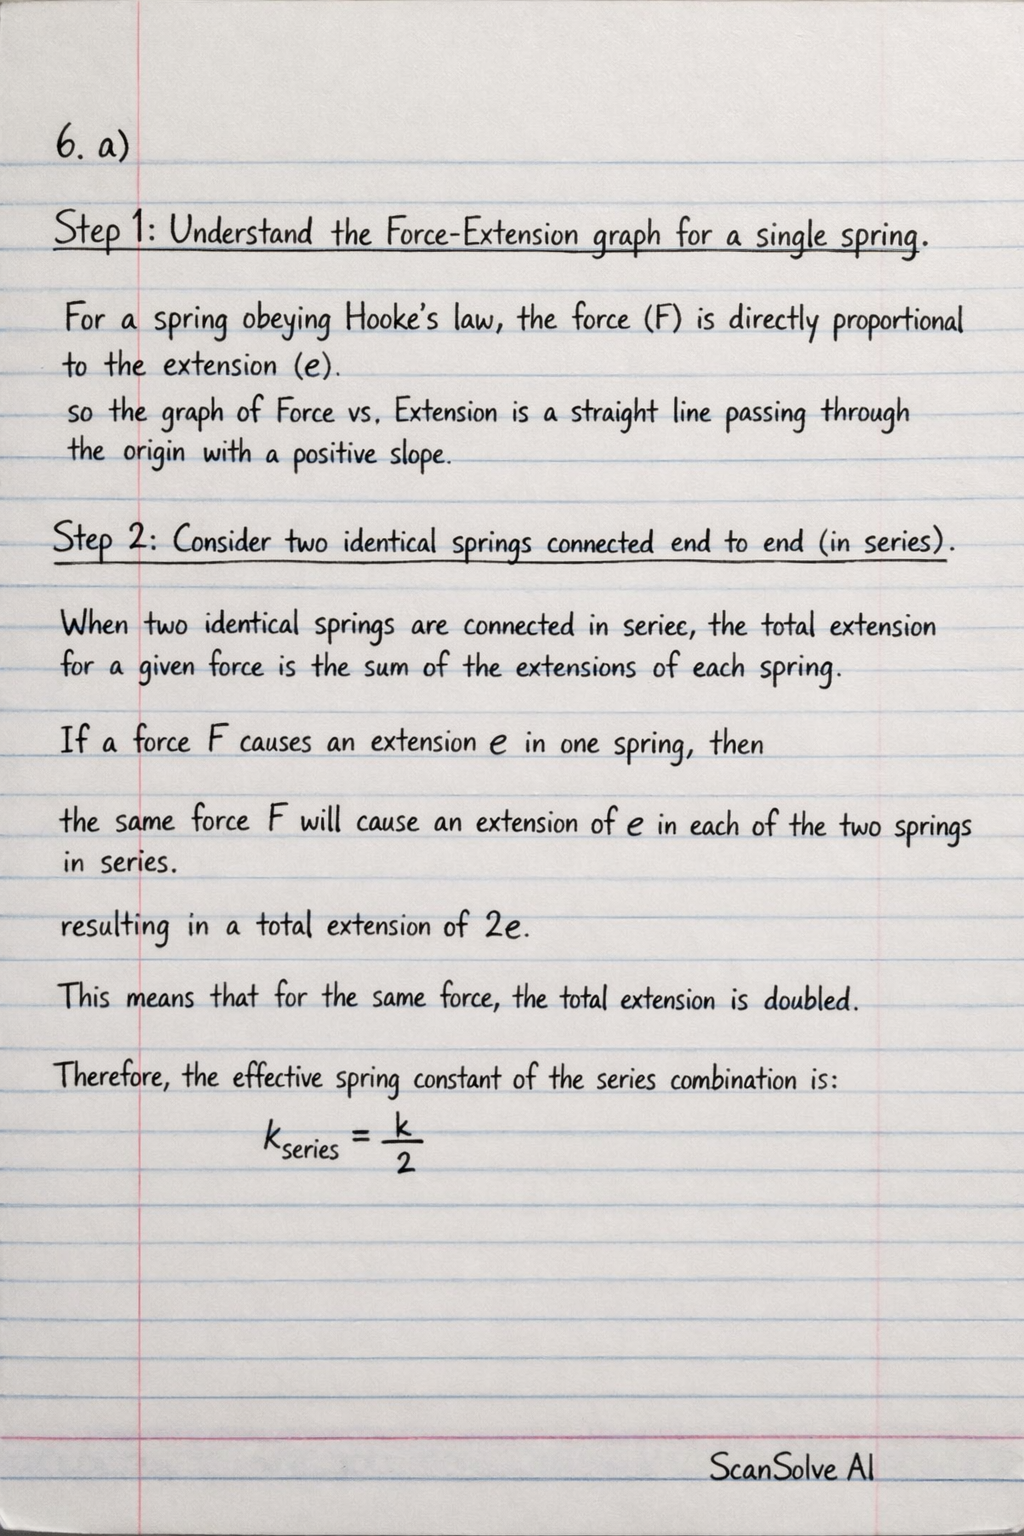 6. a)
Step 1: Understand the Force-Extension graph for a single spring.
For a spring obeying Hooke's law, the force (F) is directly proportional
to the extension (e).
so the graph of Force vs. Extension is a straight line passing through
the origin with a positive slope.
Step 2: Consider two identical springs connected end to end (in series).
When two identical springs are connected in seriec, the total extension
for a given force is the sum of the extensions of each spring.
If a force F causes an extension e in one spring, then
the same force F will cause an extension of e in each of the two springs
in series.
resulting in a total extension of 2e.
This means that for the same force, the total extension is doubled.
Therefore, the effective spring constant of the series combination is:
k_series = k/2
ScanSolve AI